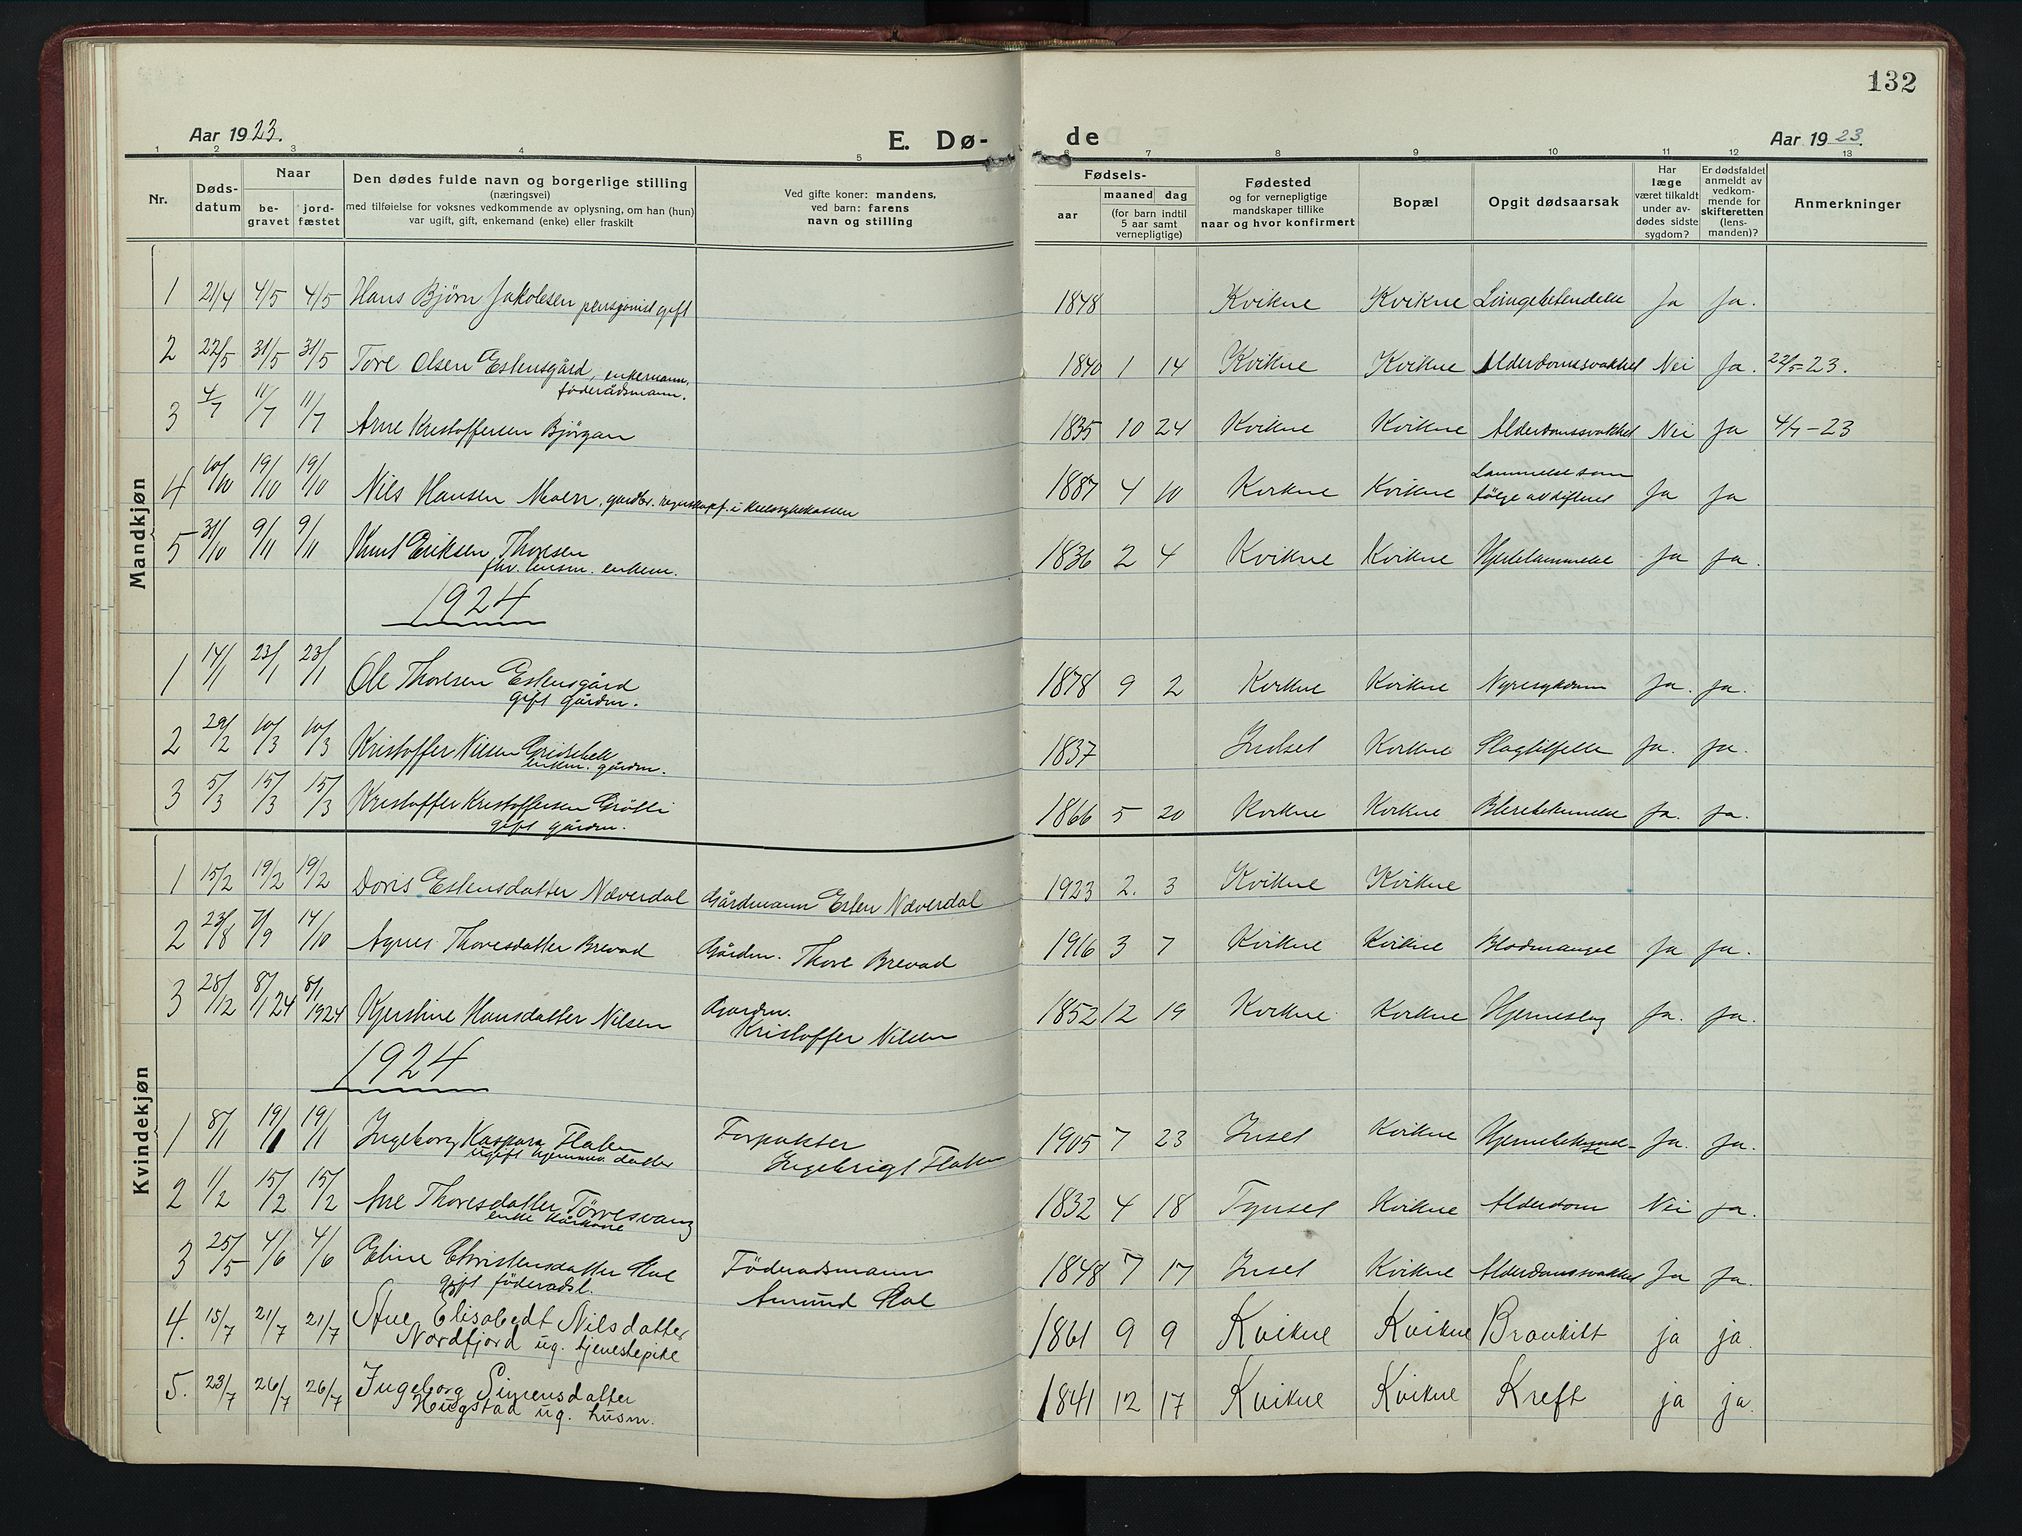 132
Aar 1923.
E. Dø-
de
Aar 1923.
1 2 3 4 5
6 7 8 9 10 11 12 13
Nr.
Døds-
datum
Naar
be-
gravet
jord-
fæstet
Den dødes fulde navn og borgerlige stilling
(næringsvei)
med tilføielse for voksnes vedkommende av oplysning, om han (hun)
var ugift, gift, enkemand (enke) eller fraskilt
Ved gifte koner: mandens,
ved barn: farens
navn og stilling
Fødsels-
aar
maaned dag
(for barn indtil
5 aar samt
vernepligtige)
Fødested
og for vernepligtige
mandskaper tillike
naar og hvor konfirmert
Bopæl
Opgit dødsaarsak
Har
læge
været tilkaldt
under av-
dødes sidste
sygdom?
Er dødsfaldet
anmeldt av
vedkom-
mende for
skifteretten
(lens-
manden)?
Anmerkninger
Mandkjøn
1 21/4 4/5 4/5 Hans Bjørn Jakobsen pensjonist gift 1848 Kvikne Kvikne Lungebetendelse Ja Ja.
2 22/5 31/5 31/5 Tore Olsen Estensgård, enkemann, 1840 1 14 Kvikne Kvikne Alderdomssvakhet Nei Ja. 22/5-23.
föderådsmann.
3 4/7 11/7 11/7 Arne Kristoffersen Bjørgan 1835 10 24 Kvikne Kvikne Alderdomssvakhet Nei Ja 4/7-23
4 10/10 19/10 19/10 Nils Hansen Moen, gardbr. regnskapsf. i Kredssykekassen 1887 4 10 Kvikne Kvikne Lammelse som
følge av difteri Ja Ja
5 31/10 9/11 9/11 Knut Eriksen Thoresen 1836 2 4 Kvikne Kvikne Hjertelammelse Ja Ja.
fhv. lensm. enkem.
1924
1 14/1 23/1 23/1 Ole Thoresen Estensgård 1878 9 2 Kvikne Kvikne Nyresykdom Ja. Ja.
gift gårdm.
2 29/2 10/3 10/3 Kristoffer Nilsen 1837 Indset Kvikne Slagtilfelle Ja. Ja.
enkm. gårdm.
3 5/3 15/3 15/3 Kristoffer Kristoffersen Grøtli 1866 5 20 Kvikne Kvikne Ja. Ja.
gift gårdm.
Kvindekjøn
1 15/2 19/2 19/2 Doris Estensdatter Næverdal Gårdmann Esten Næverdal 1923 2. 3 Kvikne Kvikne
2 23/8 7/9 14/10 Agnes Thoresdatter Brevad Gårdm. Thore Brevad 1916 3 7 Kvikne Kvikne Blodmangel Ja Ja.
3 28/12 8/1 24 8/1 1924 Kjerstine Hansdatter Nilsen Gardm.
Kristoffer Nilsen 1852 12 19 Kvikne Kvikne Hjerneslag Ja. Ja.
1924
1 8/1 19/1 19/1 Ingeborg Kaspara Flaten Forpakter 1905 7 23 Inset Kvikne Ja. Ja.
ugift hjemmev. datter Ingebrigt Flaten
2 1/2 15/2 15/2 Ane Thoresdatter Tørresvang 1832 4 18 Tynset Kvikne Alderdom Nei Ja.
enke kårkone
3 25/5 4/6 4/6 Eline Christensdatter Hol Föderadsmann 1848 7 17 Inset Kvikne Alderdomssvakhet Ja Ja.
gift föderadsk. Amund Hol
4. 15/7 21/7 21/7 Ane Elisabedt Nilsdatter 1861 9 9 Kvikne Kvikne Bronkitt ja ja.
Nordfjord ug. tjenestepike
5. 23/7 26/7 26/7 Ingeborg Simensdatter 1841 12 17 Kvikne Kvikne Kreft ja ja.
Haugstad ug. husm.